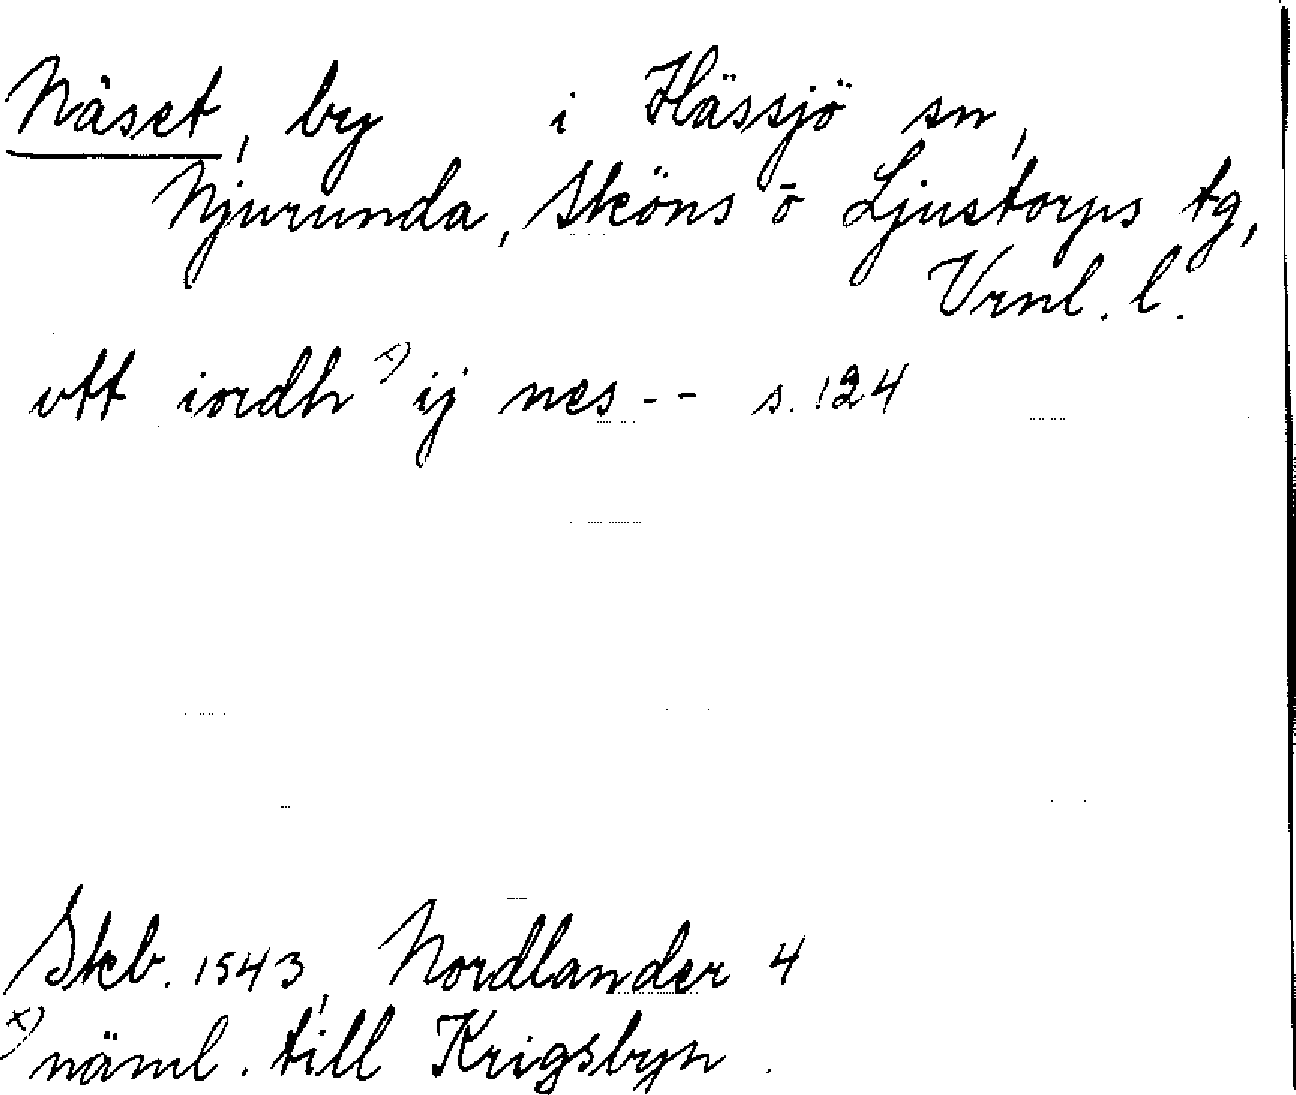 Näset, by i Hässjö sn,
Njurunda, Sköns o Ljustorps tg,
Vrnl. l.
vtt iordh x) ij nes -- s. 124
Skb. 1543, Nordlander 4
x) näml. till Krigsbyn.